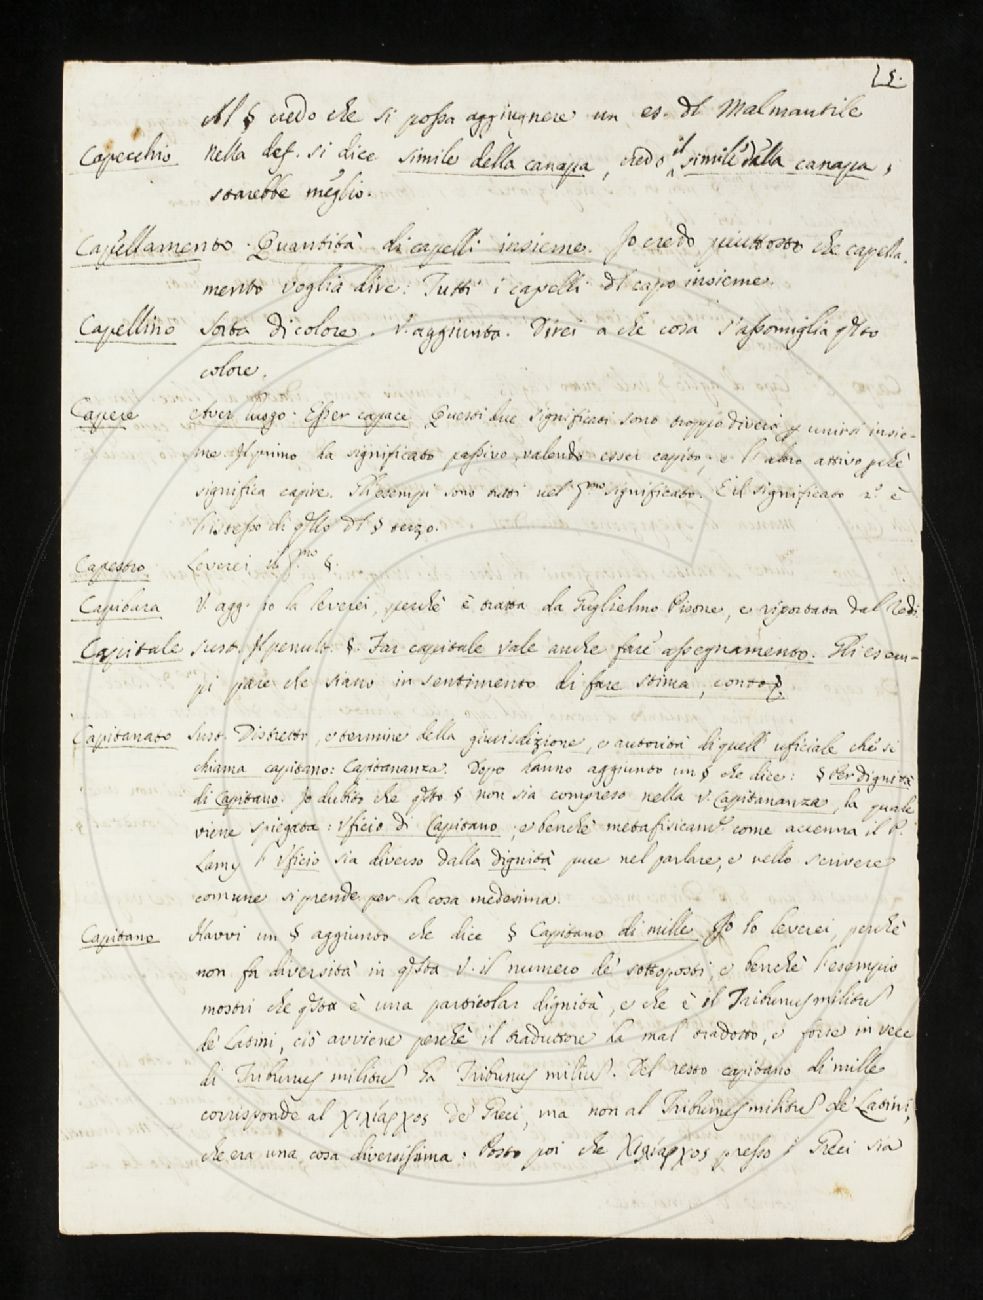 Al § credo che si possa aggiugnere un es. dl Malmantile
Capecchio Nella def. si dice simile della canapa, credo il simile dalla canapa,
starebbe meglio.
Capellamento. Quantità di capelli insieme. Io credo piuttosto che capella-
mento voglia dire: Tutti i capelli dl capo insieme.
Capellino Sorta di colore. V. aggiunta. Direi a che cosa s'assomiglia qsto
colore.
Capere Aver luogo. Esser capace. Questi due significati sono troppo diversi p unirsi insie-
me. Il primo ha significato passivo, valendo esser capito, e l'altro attivo pchè
significa capire. Gli esempi sono tutti nel pmo significato. E il significato 2º è
l'istesso di qllo dl § terzo.
Capestro. Leverei il pmo §.
Capibara V. agg. Io la leverei, perchè è tratta da Guglielmo Pisone, e riportata dal Redi.
Capitale sust. Il penult. §. Far capitale vale anche fare assegnamento. Gli esem-
pi pare che siano in sentimento di fare stima, conto
Capitanato Sust. Distretto, e termine della giurisdizione, e autorità di quell' uficiale che si
chiama capitano: Capitananza. Dopo hanno aggiunto un § che dice: § Per Dignità
di Capitano. Io dubito che qsto § non sia compreso nella V. Capitananza, la quale
viene spiegata: Uficio di Capitano, e benchè metafisicamte. come accenna il P.
Lamy l'Uficio sia diverso dalla dignità pure nel parlare, e nello scrivere
comune si prende per la cosa medesima.
Capitano Havvi un § aggiunto che dice § Capitano di mille. Io lo leverei perchè
non fa diversità in qsta V. il numero de' sottoposti, e benchè l'esempio
mostri che qsta è una particolar dignità, e che è il Tribunus militum
de' Latini, ciò avviene perchè il traduttore ha mal tradotto, e forse in vece
di Tribunus militum ha Tribunus millium. Del resto capitano di mille
corrisponde al χιλίαρχος de' Greci, ma non al Tribunus militum de' Latini,
che era una cosa diversissima. Posto poi che χιλίαρχος presso i Greci sia